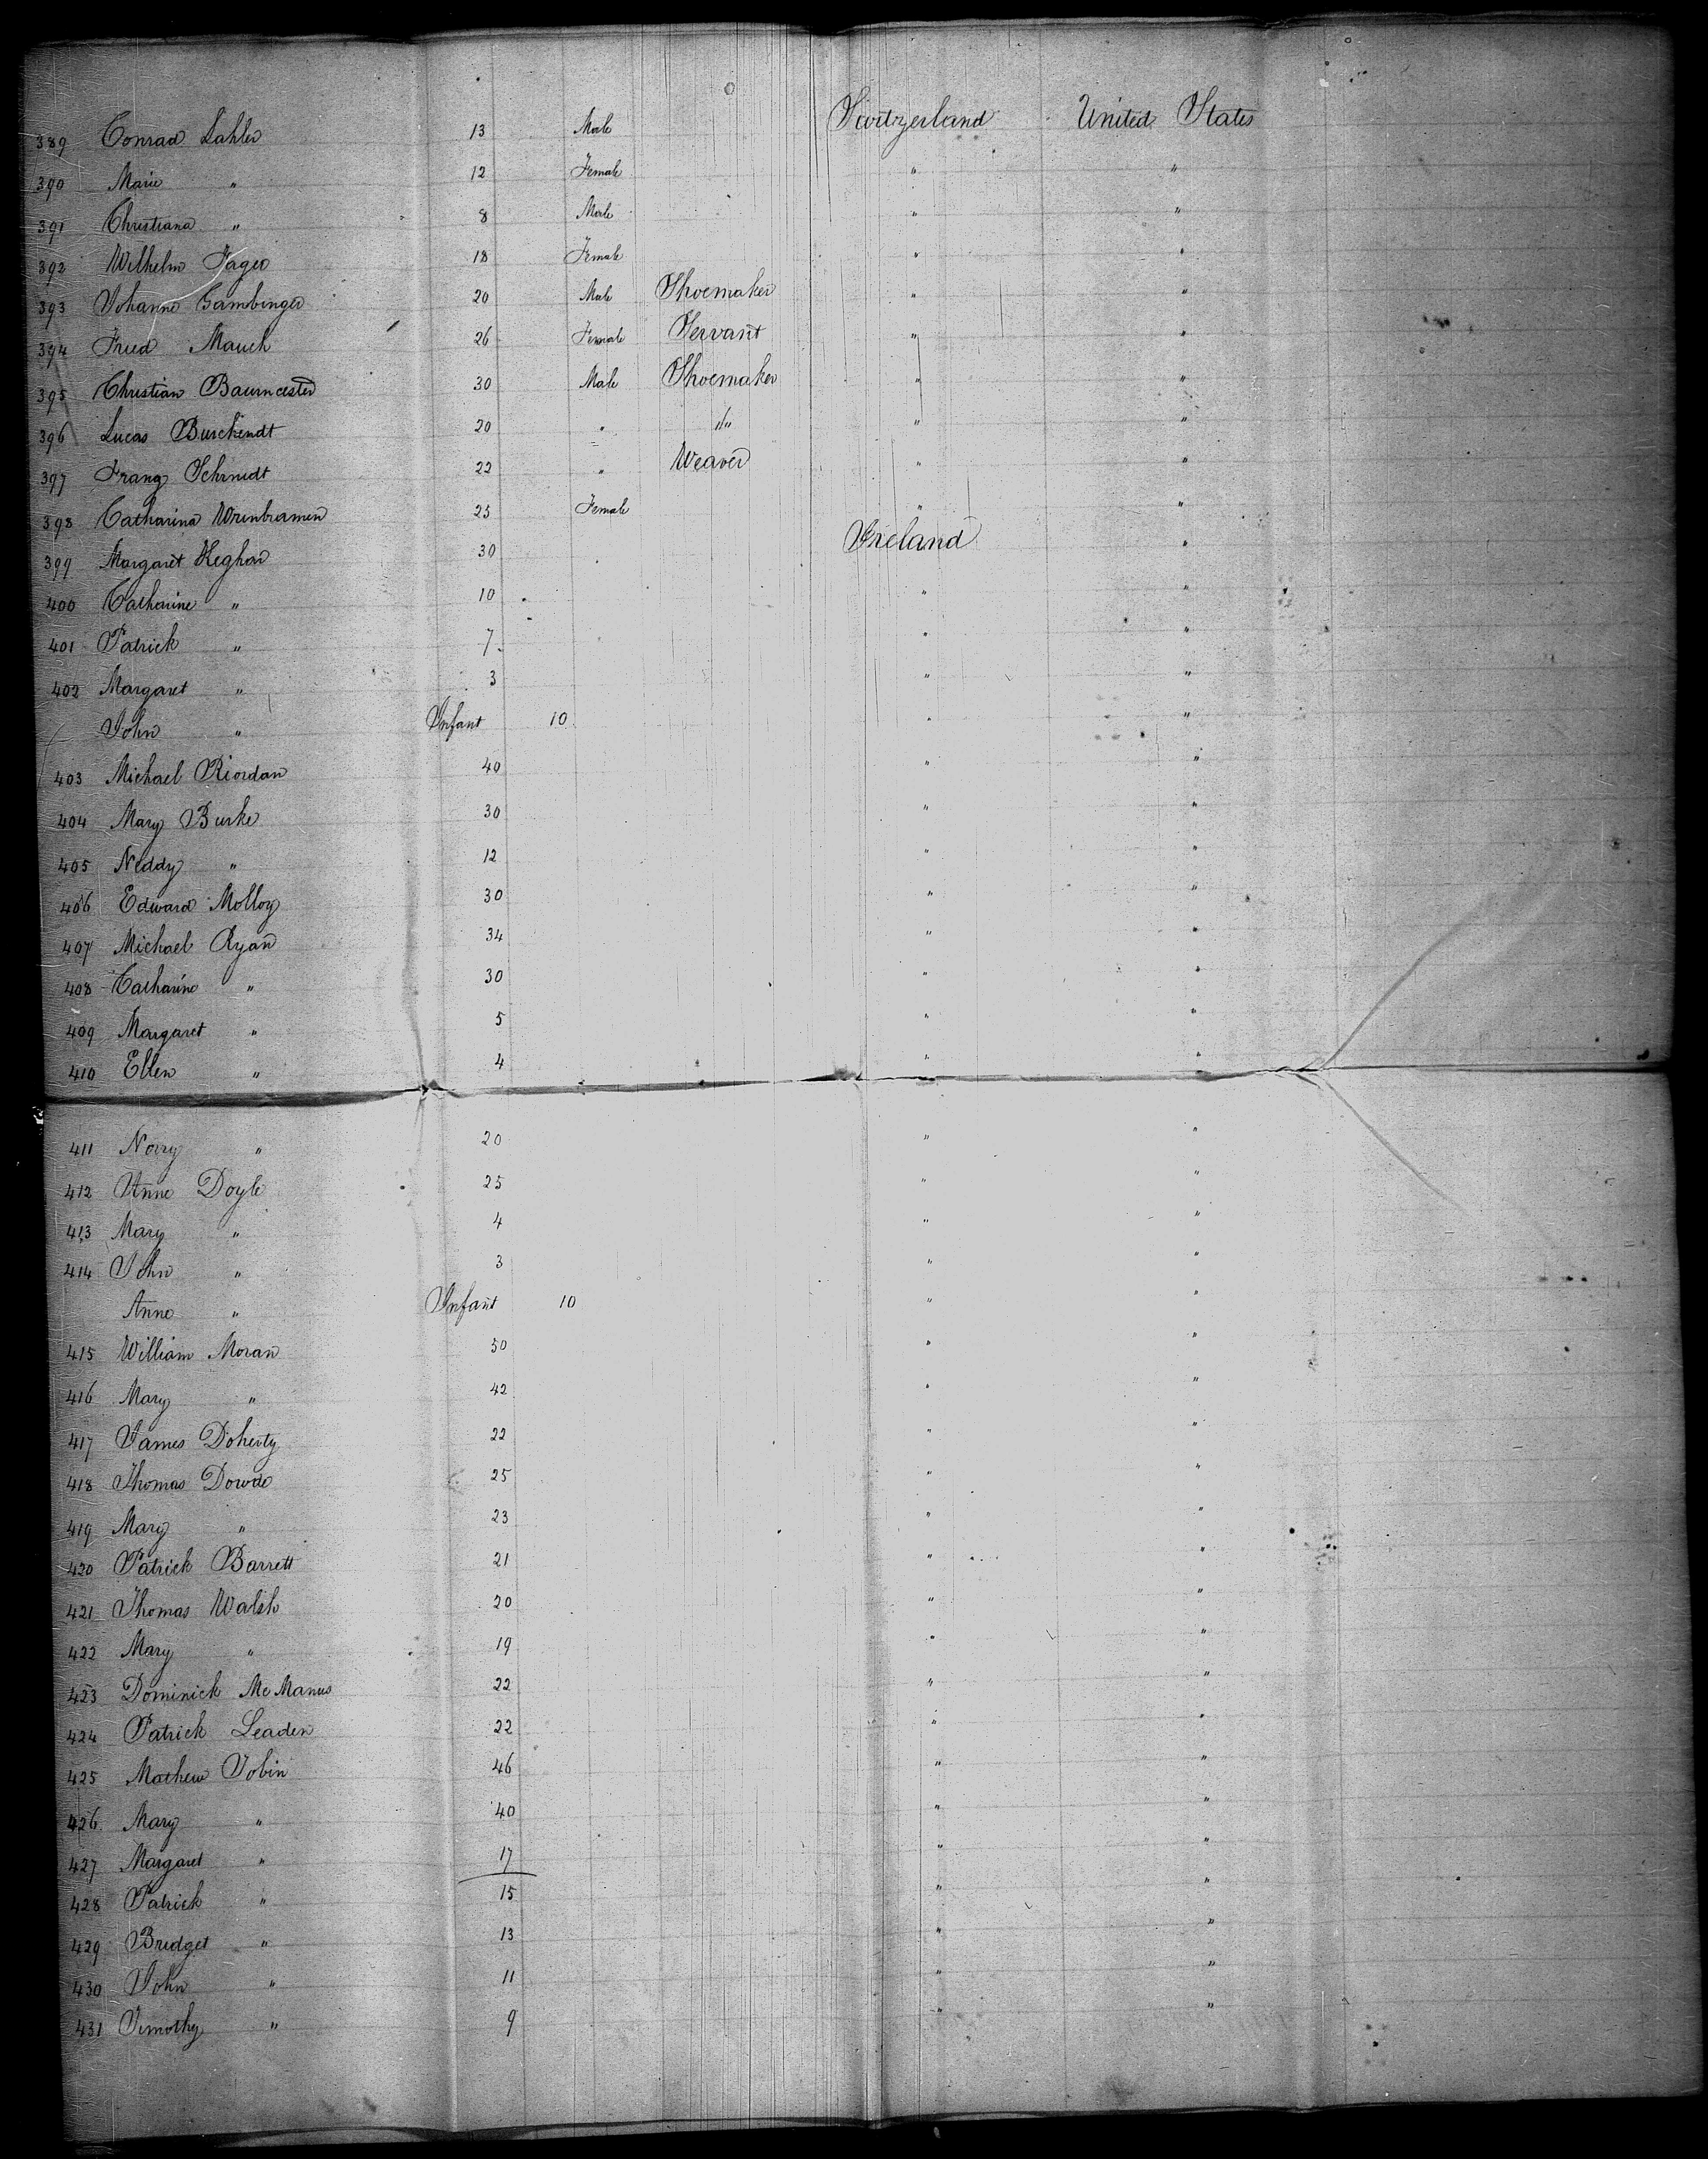 389 Conrad Lahler 13 Male Switzerland United States
390 Marie " 12 Female " "
391 Christiana " 8 Male " "
392 Wilhelm Jager 18 Female " "
393 Johanne Gambinger 20 Male Shoemaker " "
394 Fried Mauch 26 Female Servant " "
395 Christian Baumeister 30 Male Shoemaker " "
396 Lucas 20 " " " "
397 Franz Schmidt 22 " Weaver " "
398 Catharina 25 Female " "
399 Margaret Keghar 30 Ireland "
400 Catharine " 10 " "
401 Patrick " 7 " "
402 Margaret " 3 " "
John " Infant 10 " "
403 Michael Riordan 40 " "
404 Mary Burke 30 " "
405 Neddy " 12 " "
406 Edward Molloy 30 " "
407 Michael Ryan 34 " "
408 Catharine " 30 " "
409 Margaret " 5 " "
410 Ellen " 4 " "
411 Norry " 20 " "
412 Anne Doyle 25 " "
413 Mary " 4 " "
414 John " 3 " "
Anne " Infant 10 " "
415 William Moran 50 " "
416 Mary " 42 " "
417 James Doherty 22 " "
418 Thomas Dowde 25 " "
419 Mary " 23 " "
420 Patrick Barrett 21 " "
421 Thomas Walsh 20 " "
422 Mary " 19 " "
423 Dominick McManus 22 " "
424 Patrick Leaden 22 " "
425 Mathew Tobin 46 " "
426 Mary " 40 " "
427 Margaret " 17 " "
428 Patrick " 15 " "
429 Bridget " 13 " "
430 John " 11 " "
431 Timothy " 9 " "